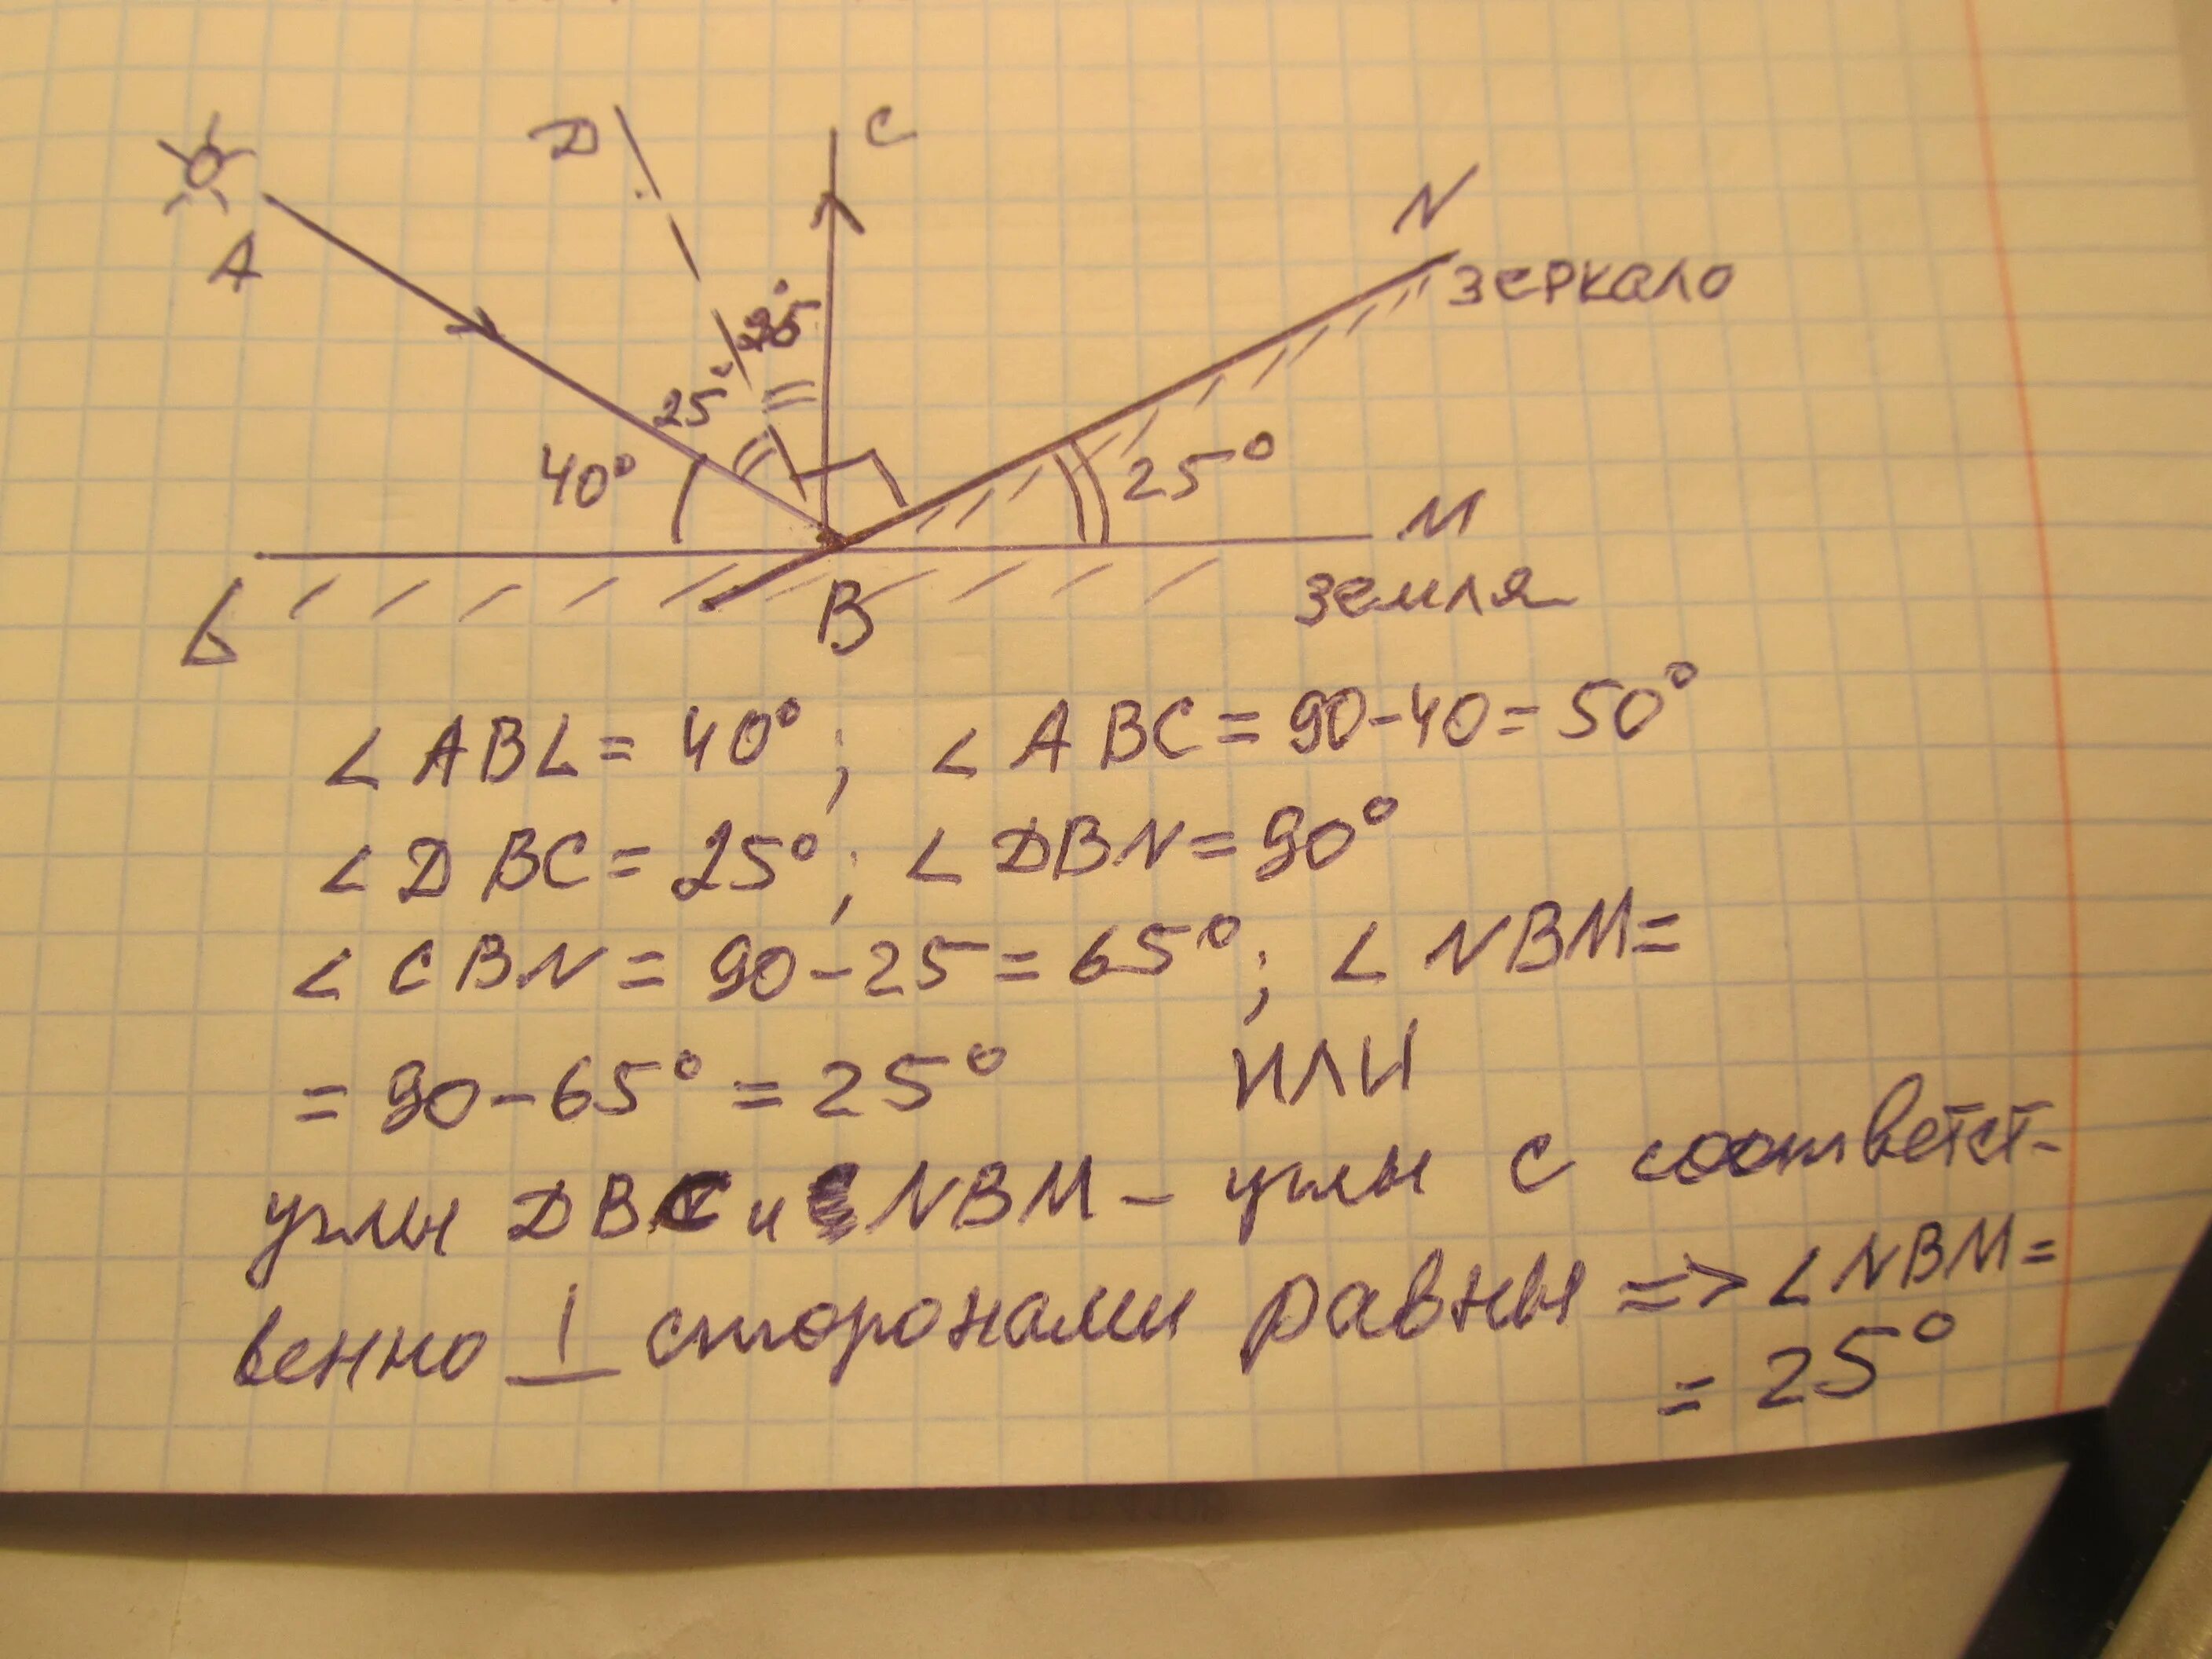 D
C
A
N
зеркало
25°
25°
40°
25°
M
L
B
земля
∠ABL = 40°; ∠ABC = 90-40 = 50°
∠DBC = 25°; ∠DBN = 90°
∠CBN = 90-25 = 65°; ∠NBM =
= 90-65° = 25° ИЛИ
углы DBC и NBM - углы с соответст-
венно ⊥ сторонами равны => ∠NBM =
= 25°